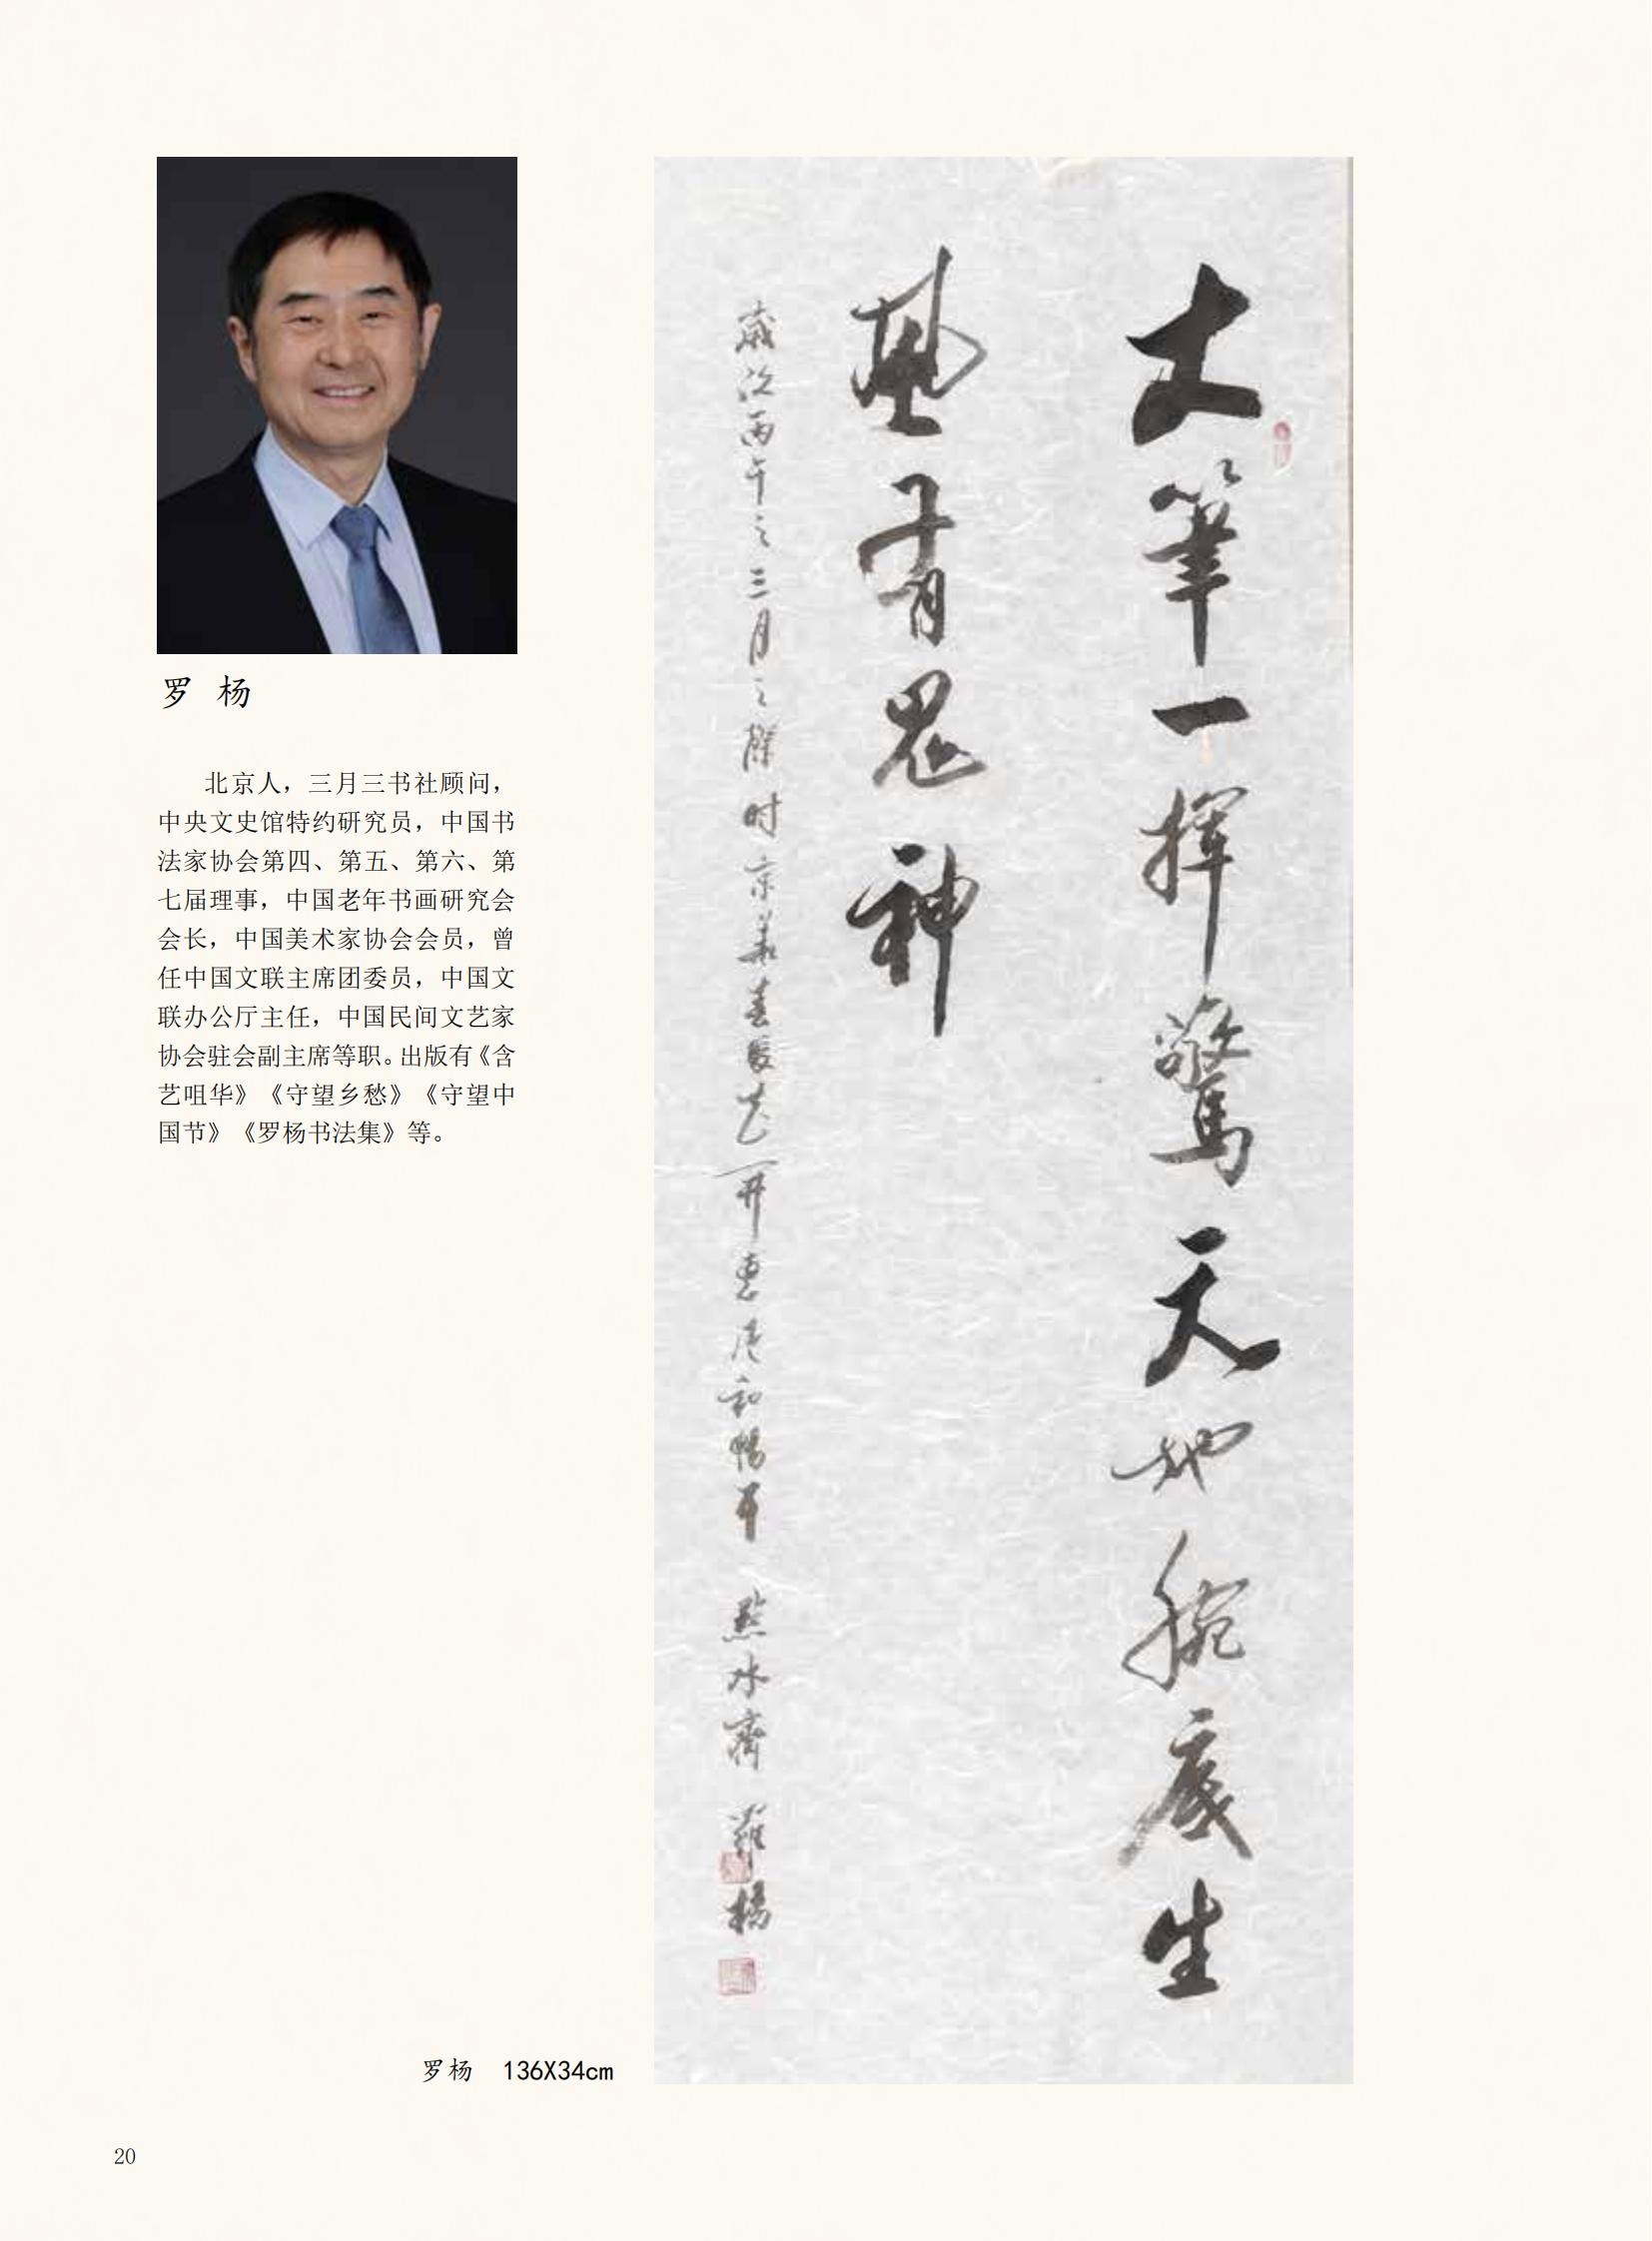 罗 杨
北京人，三月三书社顾问，
中央文史馆特约研究员，中国书
法家协会第四、第五、第六、第
七届理事，中国老年书画研究会
会长，中国美术家协会会员，曾
任中国文联主席团委员，中国文
联办公厅主任，中国民间文艺家
协会驻会副主席等职。出版有《含
艺咀华》《守望乡愁》《守望中
国节》《罗杨书法集》等。
筆一揮驚天地腕底生
風有鬼神
歲次丙午之三月之際时京華春暖花開惠風和暢 點水齋 羅楊
罗杨 136X34cm
20